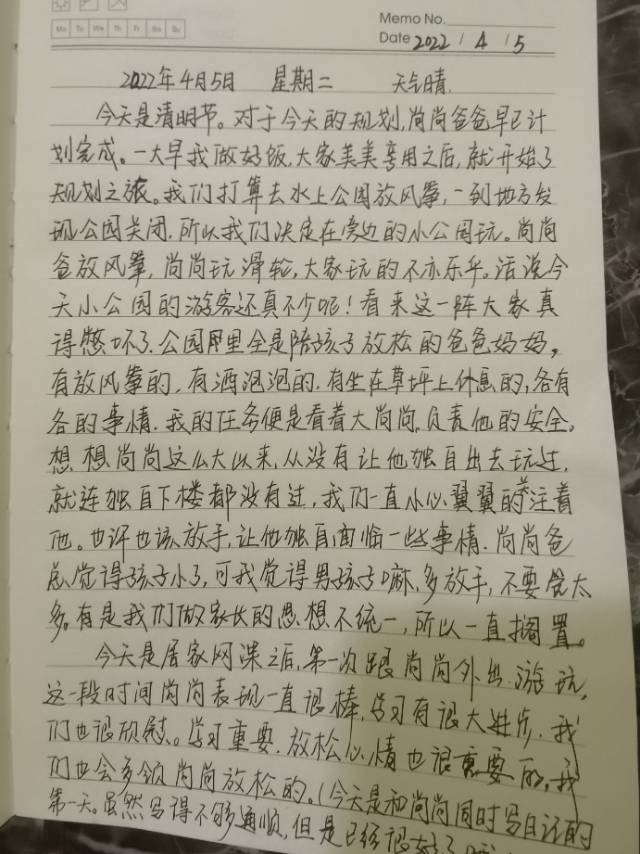 Memo No.
Mo Tu We Th Fr Sa Su
Date 2022 / 4 / 5
2022年4月5日 星期二 天气晴.
今天是清明节。对于今天的规划,尚尚爸爸早已计
划完成。一大早我做好饭,大家美美享用之后,就开始了
规划之旅。我们打算去水上公园放风筝,一到地方发
现公园关闭.所以我们决定在旁边的小公园玩。尚尚
爸放风筝,尚尚玩滑轮,大家玩的不亦乐乎。话说今
天小公园的游客还真不少呢!看来这一阵大家真
得憋坏了.公园里全是陪孩子放松的爸爸妈妈,
有放风筝的.有洒泡泡的.有坐在草坪上休息的,各有
各的事情.我的任务便是看着大尚尚,负责他的安全。
想想尚尚这么大以来,从没有让他独自出去玩过.
就连独自下楼都没有过,我们一直小心翼翼的关注着
他。也许也该放手,让他独自面临一些事情.尚尚爸
总觉得孩子小了,可我觉得男孩子嘛,多放手,不要管太
多。有是我们做家长的思想不统一,所以一直搁置。
今天是居家网课之后,第一次跟尚尚外出游玩,
这一段时间尚尚表现一直很棒,学习有很大进步.我
们也很欣慰。学习重要.放松心情也很重要的,我
们也会多领尚尚放松的。(今天是和尚尚同时写日记的
第一天。虽然写得不够通顺,但是已经很好了